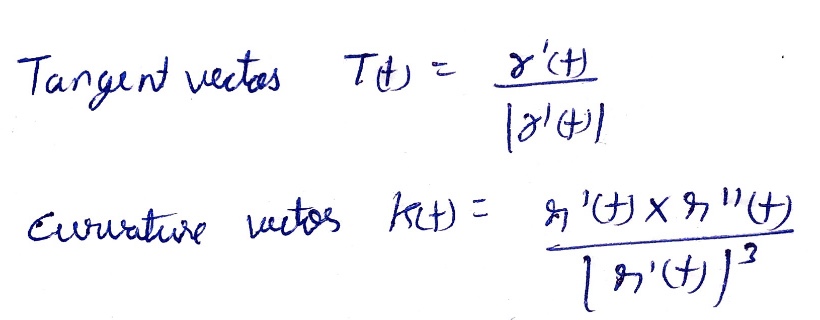 Tangent vector T(t) = r'(t) / |r'(t)|
Curvature vector K(t) = r'(t) × r''(t) / |r'(t)|³